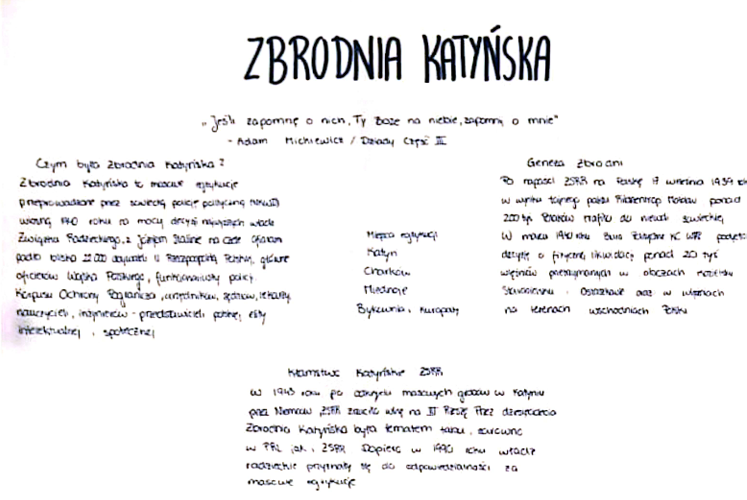 ZBRODNIA KATYŃSKA
„Jeśli zapomnę o nich, Ty Boże na niebie, zapomnij o mnie"
- Adam Mickiewicz / Dziady Część III
Czym była Zbrodnia Katyńska?
Zbrodnia Katyńska to masowe egzekucje
przeprowadzone przez sowiecką policję polityczną NKWD
wiosną 1940 roku na mocy decyzji najwyższych władz
Związku Radzieckiego, z Józefem Stalinem na czele. Ofiarami
padło blisko 22 000 obywateli II Rzeczpospolitej Polskiej, głównie
oficerów Wojska Polskiego, funkcjonariuszy policji
Korpusu Ochrony Pogranicza, urzędników, sędziów, lekarzy,
nauczycieli, inżynierów - przedstawicieli polskiej elity
intelektualnej, społecznej
Miejsca egzekucji
Katyń
Charków
Miednoje
Bykownia, Kuropaty
Geneza Zbrodni
Po napaści ZSRR na Polskę 17 września 1939 r.
w wyniku tajnego paktu Ribbentrop Mołotow ponad
200 tyś Polaków trafiło do niewoli sowieckiej
W marcu 1940 roku Biuro Polityczne KC podjęło
decyzję o fizycznej likwidacji ponad 20 tyś
więźniów przetrzymywanych w obozach
Ostaszkowie oraz w więzieniach
na terenach wschodniach Polski
Kłamstwo Katyńskie ZSRR
W 1943 roku po odkryciu masowych grobów w Katyniu
przez Niemców, ZSRR zrzuciło winę na III Rzeszę Przez dziesięciolecia
Zbrodnia Katyńska była tematem tabu, zarówno
w PRL jak i ZSRR Dopiero w 1990 roku władze
radzieckie przyznały się do odpowiedzialności za
masowe egzekucje